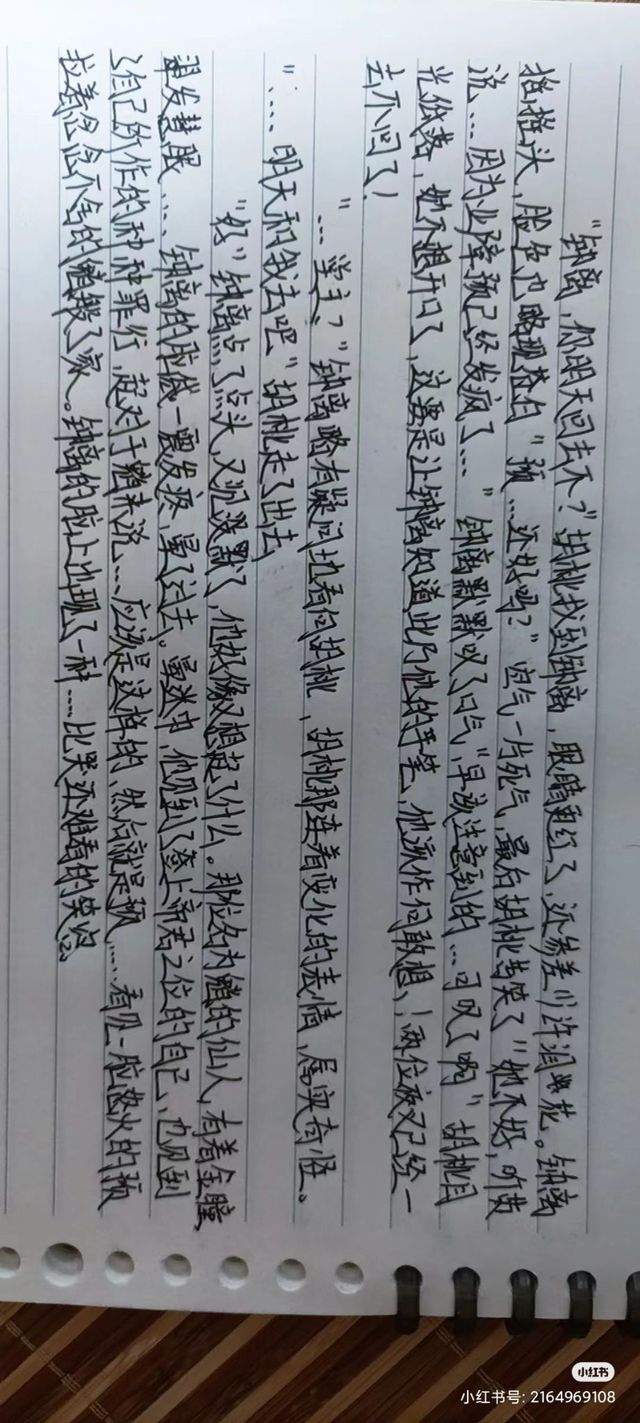 "钟离，你明天回去不？"胡桃找到钟离，眼睛更红了，还参差些许泪花。钟离
摇摇头，脸色也略现苍白"颈…还好吗？"空气一片死气，最后胡桃苦笑了"她不好，听黄
说…因为业障颈已经发疯了…"钟离默默叹了口气，"早该注意到的…可叹了啊"胡桃目
光低落，她不想开口了，这要是让钟离知道此乃他的手笔，他该作何敢想，！两位夜叉已经一
去不回了！
"…堂主？"钟离略有疑问地看向胡桃，胡桃那连着变化的表情，属实奇怪。
"…明天和我去吧"胡桃走了出去
"好"钟离点了点头，又沉默了，他好像又想起了什么。那位名为的仙人，有着金瞳
翠发慧眼…钟离的一震发疼，晕了过去。晕迷中，他见到了登上帝君之位的自己，也见到
了自己所作的种种罪行，起对于来说…应该是这样的，然后就是颈……看见一脸怒火的颈
拉着念念不舍的搬了家。钟离的脸上也现了一种……比哭还难看的笑容。
小红书
小红书号: 2164969108